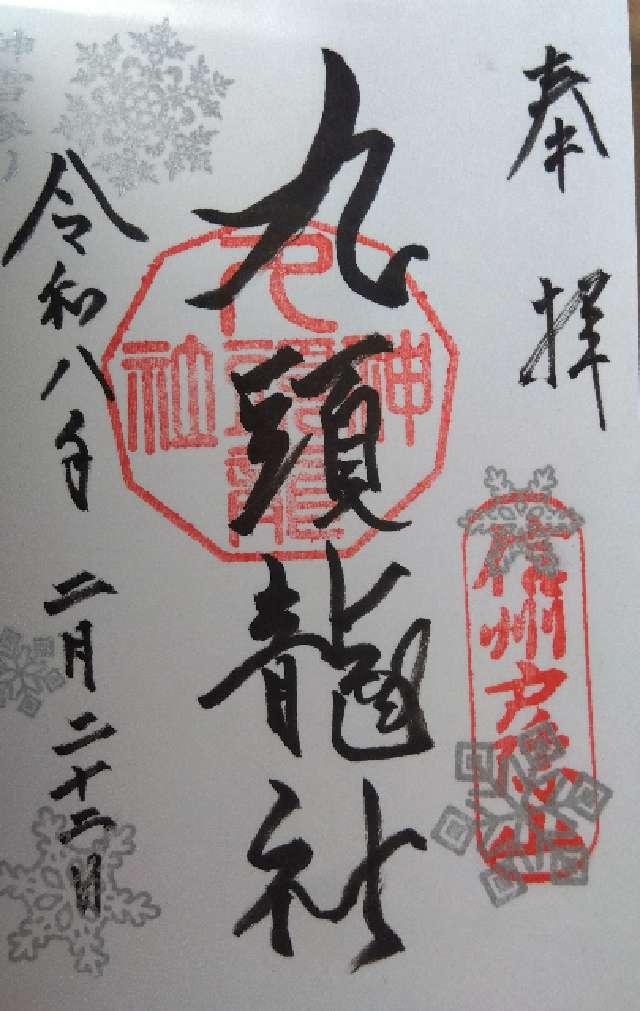 奉拝
信州戸隠山
九頭龍社
九頭龍神社
令和八年二月二十二日